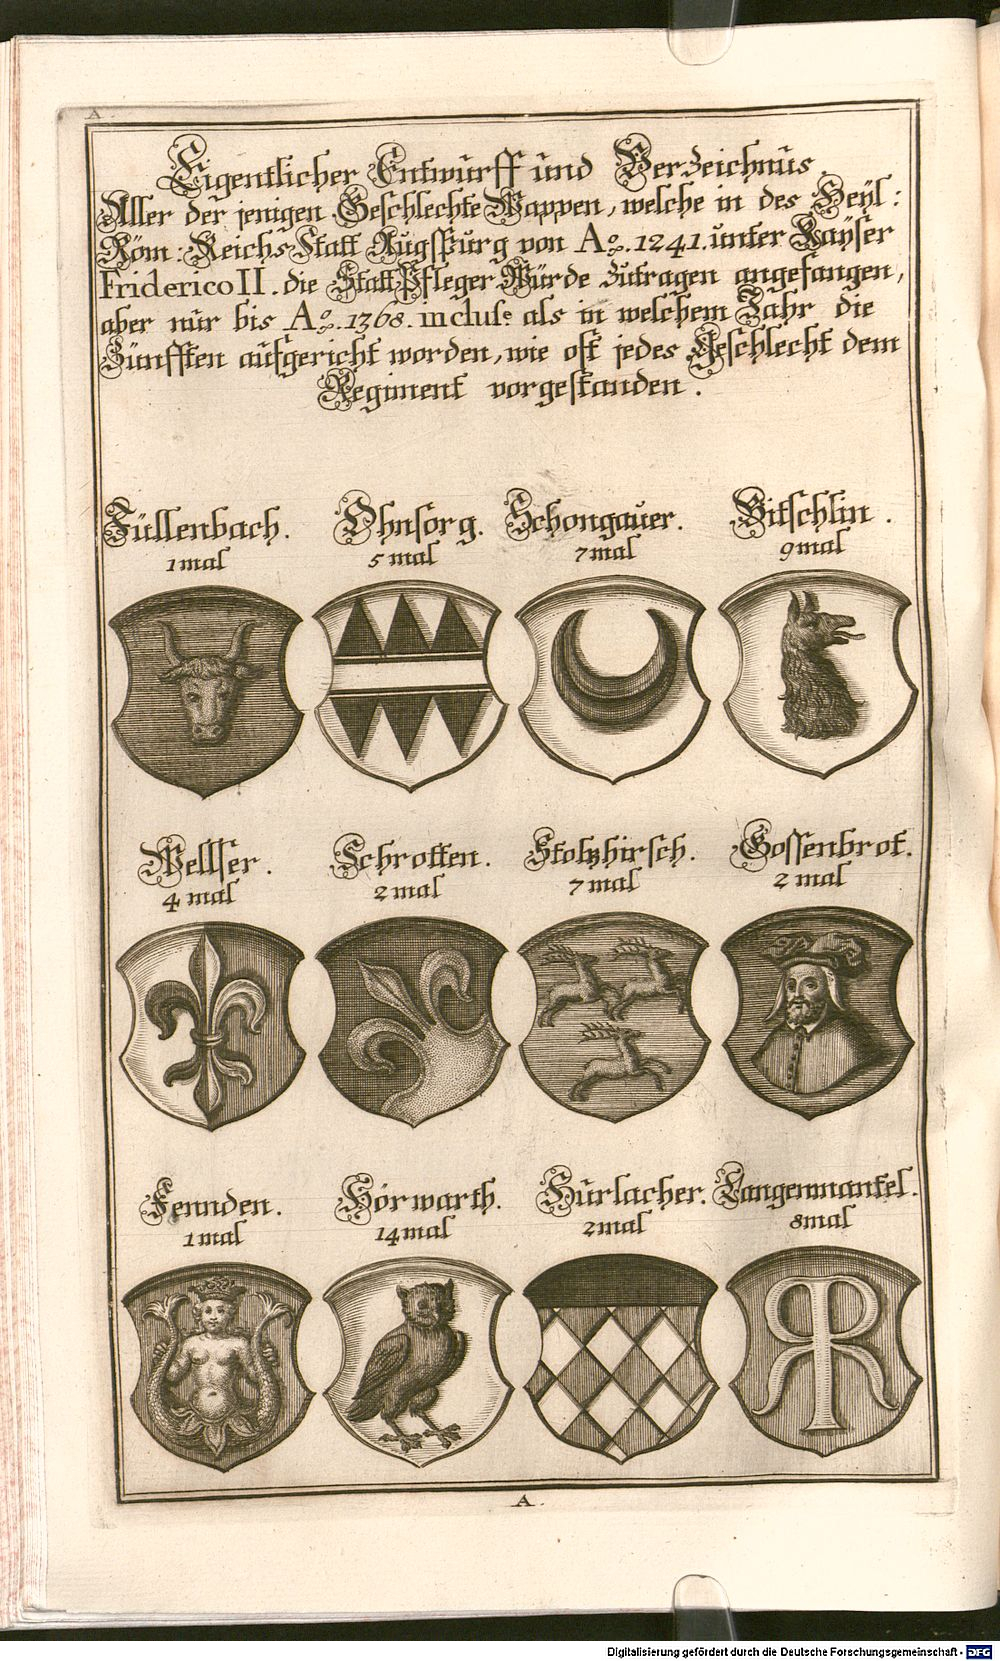 A
Eigentlicher Entwurff und Verzeichnus.
Aller der jenigen Geschlechte Wappen, welche in des Heyl:
Röm: Reichs Statt Augspurg von Aº. 1241. unter Kayser
Friderico II. die Statt Pfleger Würde zutragen angefangen,
aber nur bis Aº. 1368. inclusᵉ als in welchem Jahr die
Zünfften aufgericht worden, wie oft jedes Geschlecht dem
Regiment vorgestanden.
Füllenbach. Ohnsorg. Schongauer. Bitschlin.
1 mal 5 mal 7 mal 9 mal
Wellser. Schrotten. Stolzhirsch. Gossenbrot.
4 mal 2 mal 7 mal 2 mal
Fennden. Hörwarth. Hurlacher. Langenmantel.
1 mal 14 mal 2 mal 8 mal
A.
Digitalisierung gefördert durch die Deutsche Forschungsgemeinschaft - DFG